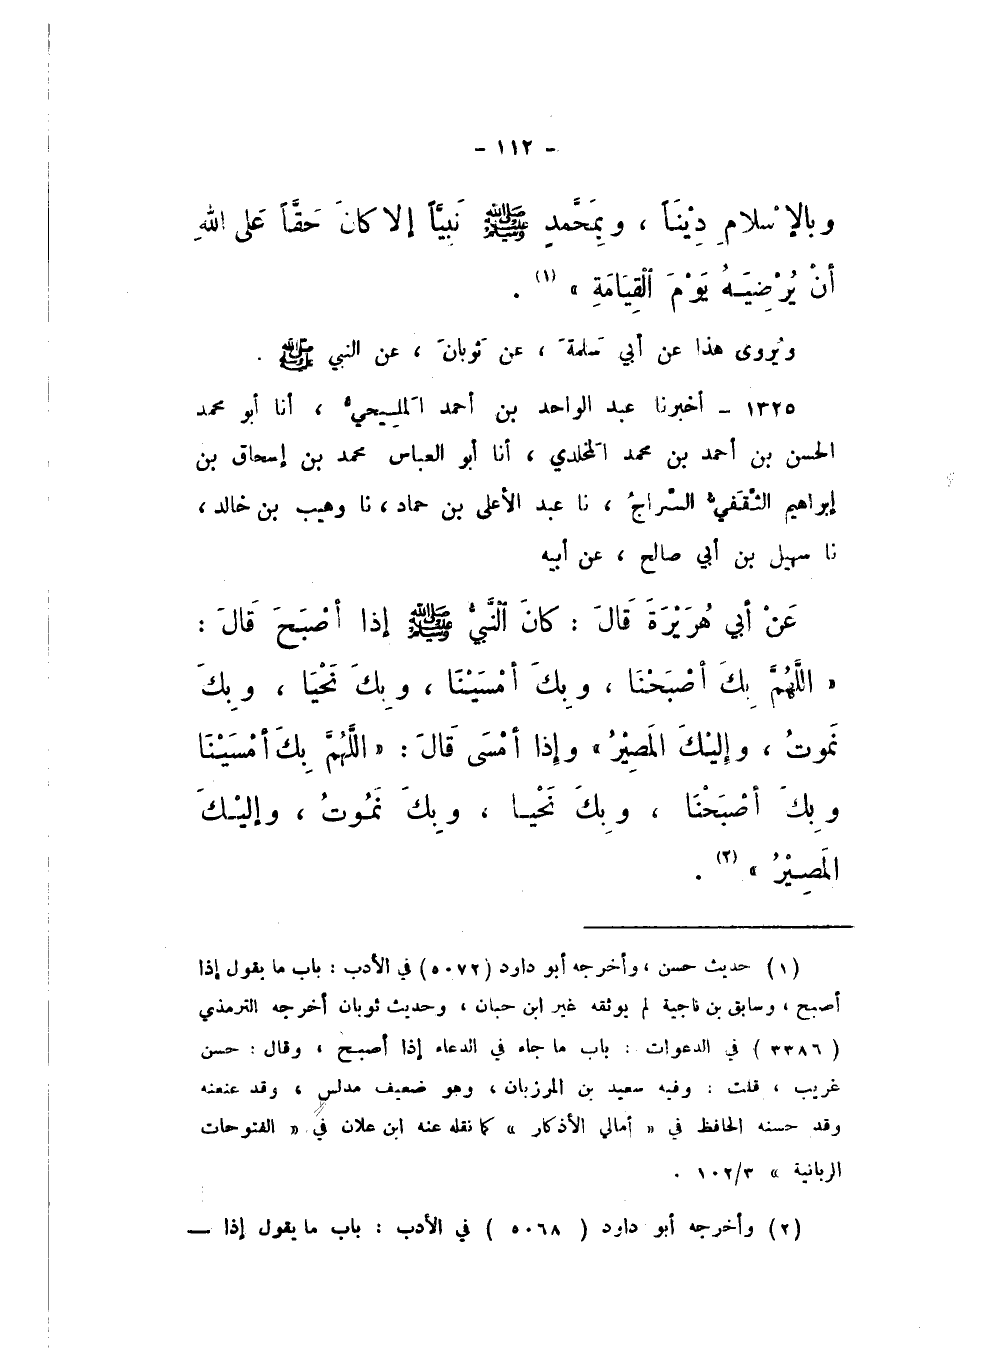 - ١١٢ -
وبالإسْلامِ دِيْنَاً ، وبِمَحَّمدٍ ﷺ نَبِيَّاً إلا كانَ حَقَّاً عَلى اللهِ
أنْ يُرْضِيَـهُ يَوْمَ ٱلْقِيَامَةِ » (١) .
ويُروى هذا عن أبي سَلمةَ ، عن ثَوبانَ ، عن النبي ﷺ .
١٣٢٥ ـ أخبرنا عبد الواحد بن أحمد المَلِيحيُّ ، أنا أبو محمد
الحسن بن أحمد بن محمد المَخلدي ، أنا أبو العباس محمد بن إسحاق بن
إبراهيم الثَّقَفيُّ السَّراجُ ، نا عبد الأعلى بن حماد ، نا وهيب بن خالد ،
نا سهيل بن أبي صالح ، عن أبيه
عَنْ أبي هُرَيْرَةَ قَالَ : كانَ ٱلنَّبِيُّ ﷺ إذا أصْبَحَ قَالَ :
« اللَّهُمَّ بِكَ أصْبَحْنَا ، وبِكَ أمْسَيْنَا ، وبِكَ نَحْيَا ، وبِكَ
نَموتُ ، وإليْكَ المَصِيْرُ » وإذا أمْسَى قَالَ : « اللَّهُمَّ بِكَ أمْسَيْنَا
وبِكَ أصْبَحْنَا ، وبِكَ نَحْيـا ، وبِكَ نَمُوتُ ، وإليْـكَ
المَصِـيْرُ » (٢) .
(١) حديث حسن ، وأخرجه أبو داود (٥٠٧٢) في الأدب : باب ما يقول إذا
أصبح ، وسابق بن ناجية لم يوثقه غير ابن حبان ، وحديث ثوبان أخرجه الترمذي
( ٣٣٨٦ ) في الدعوات : باب ما جاء في الدعاء إذا أصبـح ، وقال : حسن
غريب ، قلت : وفيه سعيد بن المرزبان ، وهو ضعيف مدلس ، وقد عنعنه
وقد حسنه الحافظ في « أمالي الأذكار » كما نقله عنه ابن علان في « الفتوحات
الربانية » ١٠٢/٣ .
(٢) وأخرجه أبو داود ( ٥٠٦٨ ) في الأدب : باب ما يقول إذا —